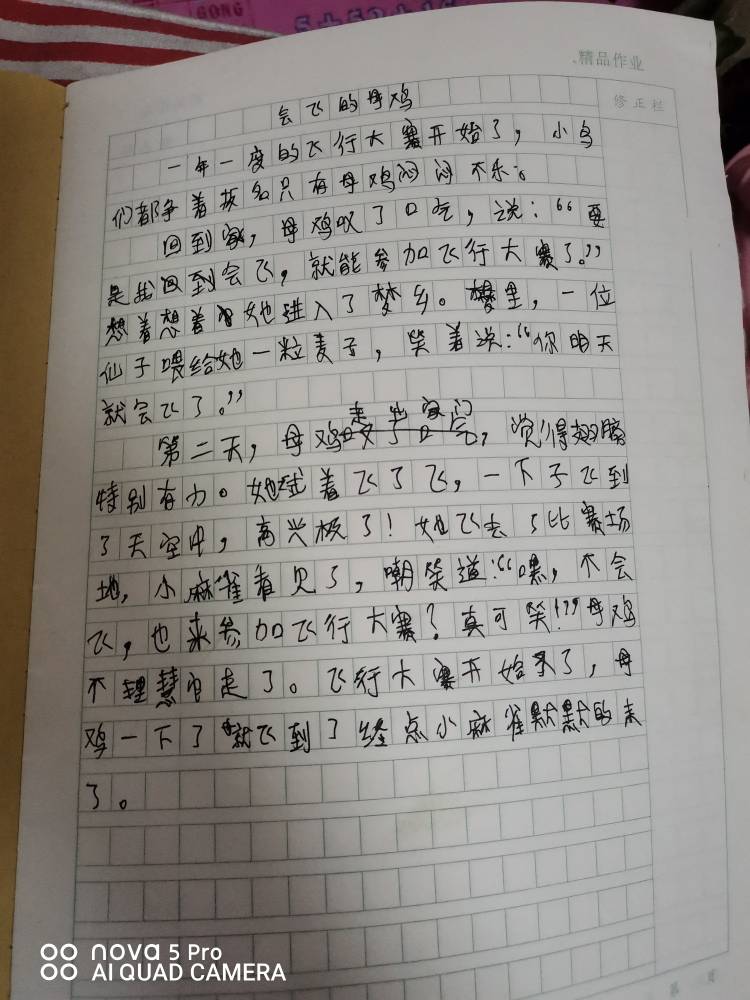 GONG
精品作业
修正栏
会飞的母鸡
一年一度的飞行大赛开始了，小鸟
们都争着报名只有母鸡闷闷不乐。
回到家，母鸡叹了口气，说：“要
是我回到会飞，就能参加飞行大赛了。”
想着想着她进入了梦乡。梦里，一位
仙子喂给她一粒麦子，笑着说：“你明天
就会飞了。”
走出家门
第二天，母鸡叹了口气，觉得翅膀
特别有力。她试着飞了飞，一下子飞到
了天空中，高兴极了！她飞去了比赛场
地，小麻雀看见了，嘲笑道：“嘿，不会
飞，也来参加飞行大赛？真可笑！”母鸡
不理走了。飞行大赛开始了，母
鸡一下了就飞到了终点小麻雀默默的走
了。
第 页
nova 5 Pro
AI QUAD CAMERA